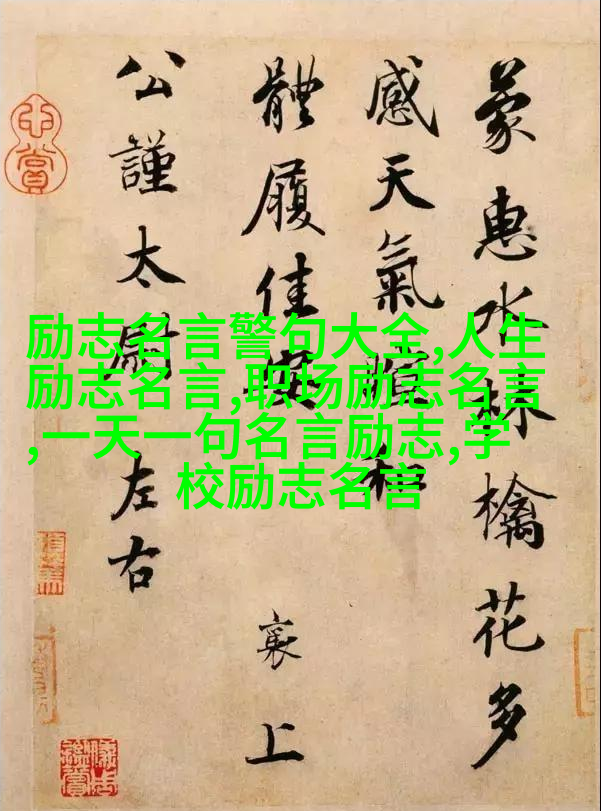 蒙惠水林檎花多
感天氣暄和
體履佳安
襄上
公謹太尉左右
励志名言警句大全,人生
励志名言,职场励志名言
,一天一句名言励志,学
校励志名言
心賞